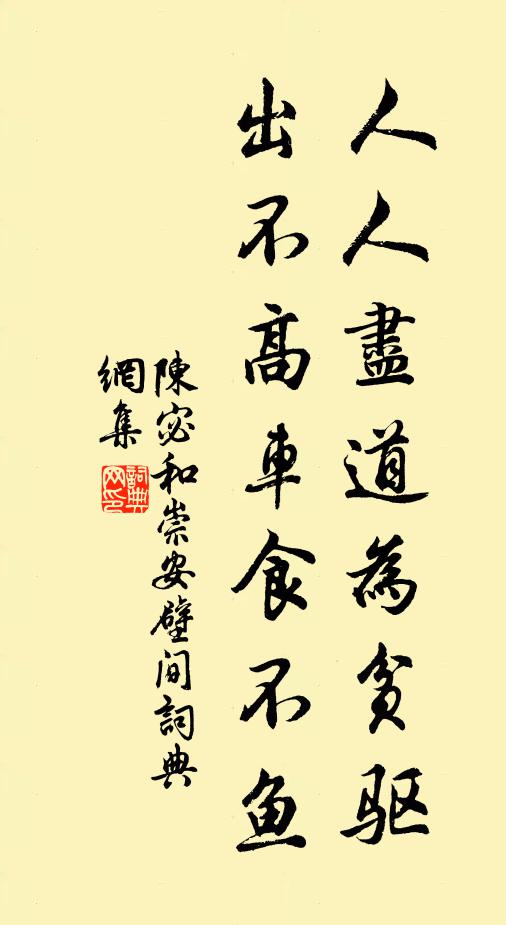 人人盡道為貧驱
出不高車食不鱼
陳宓和崇安壁間詞典
網集
詞典
网印